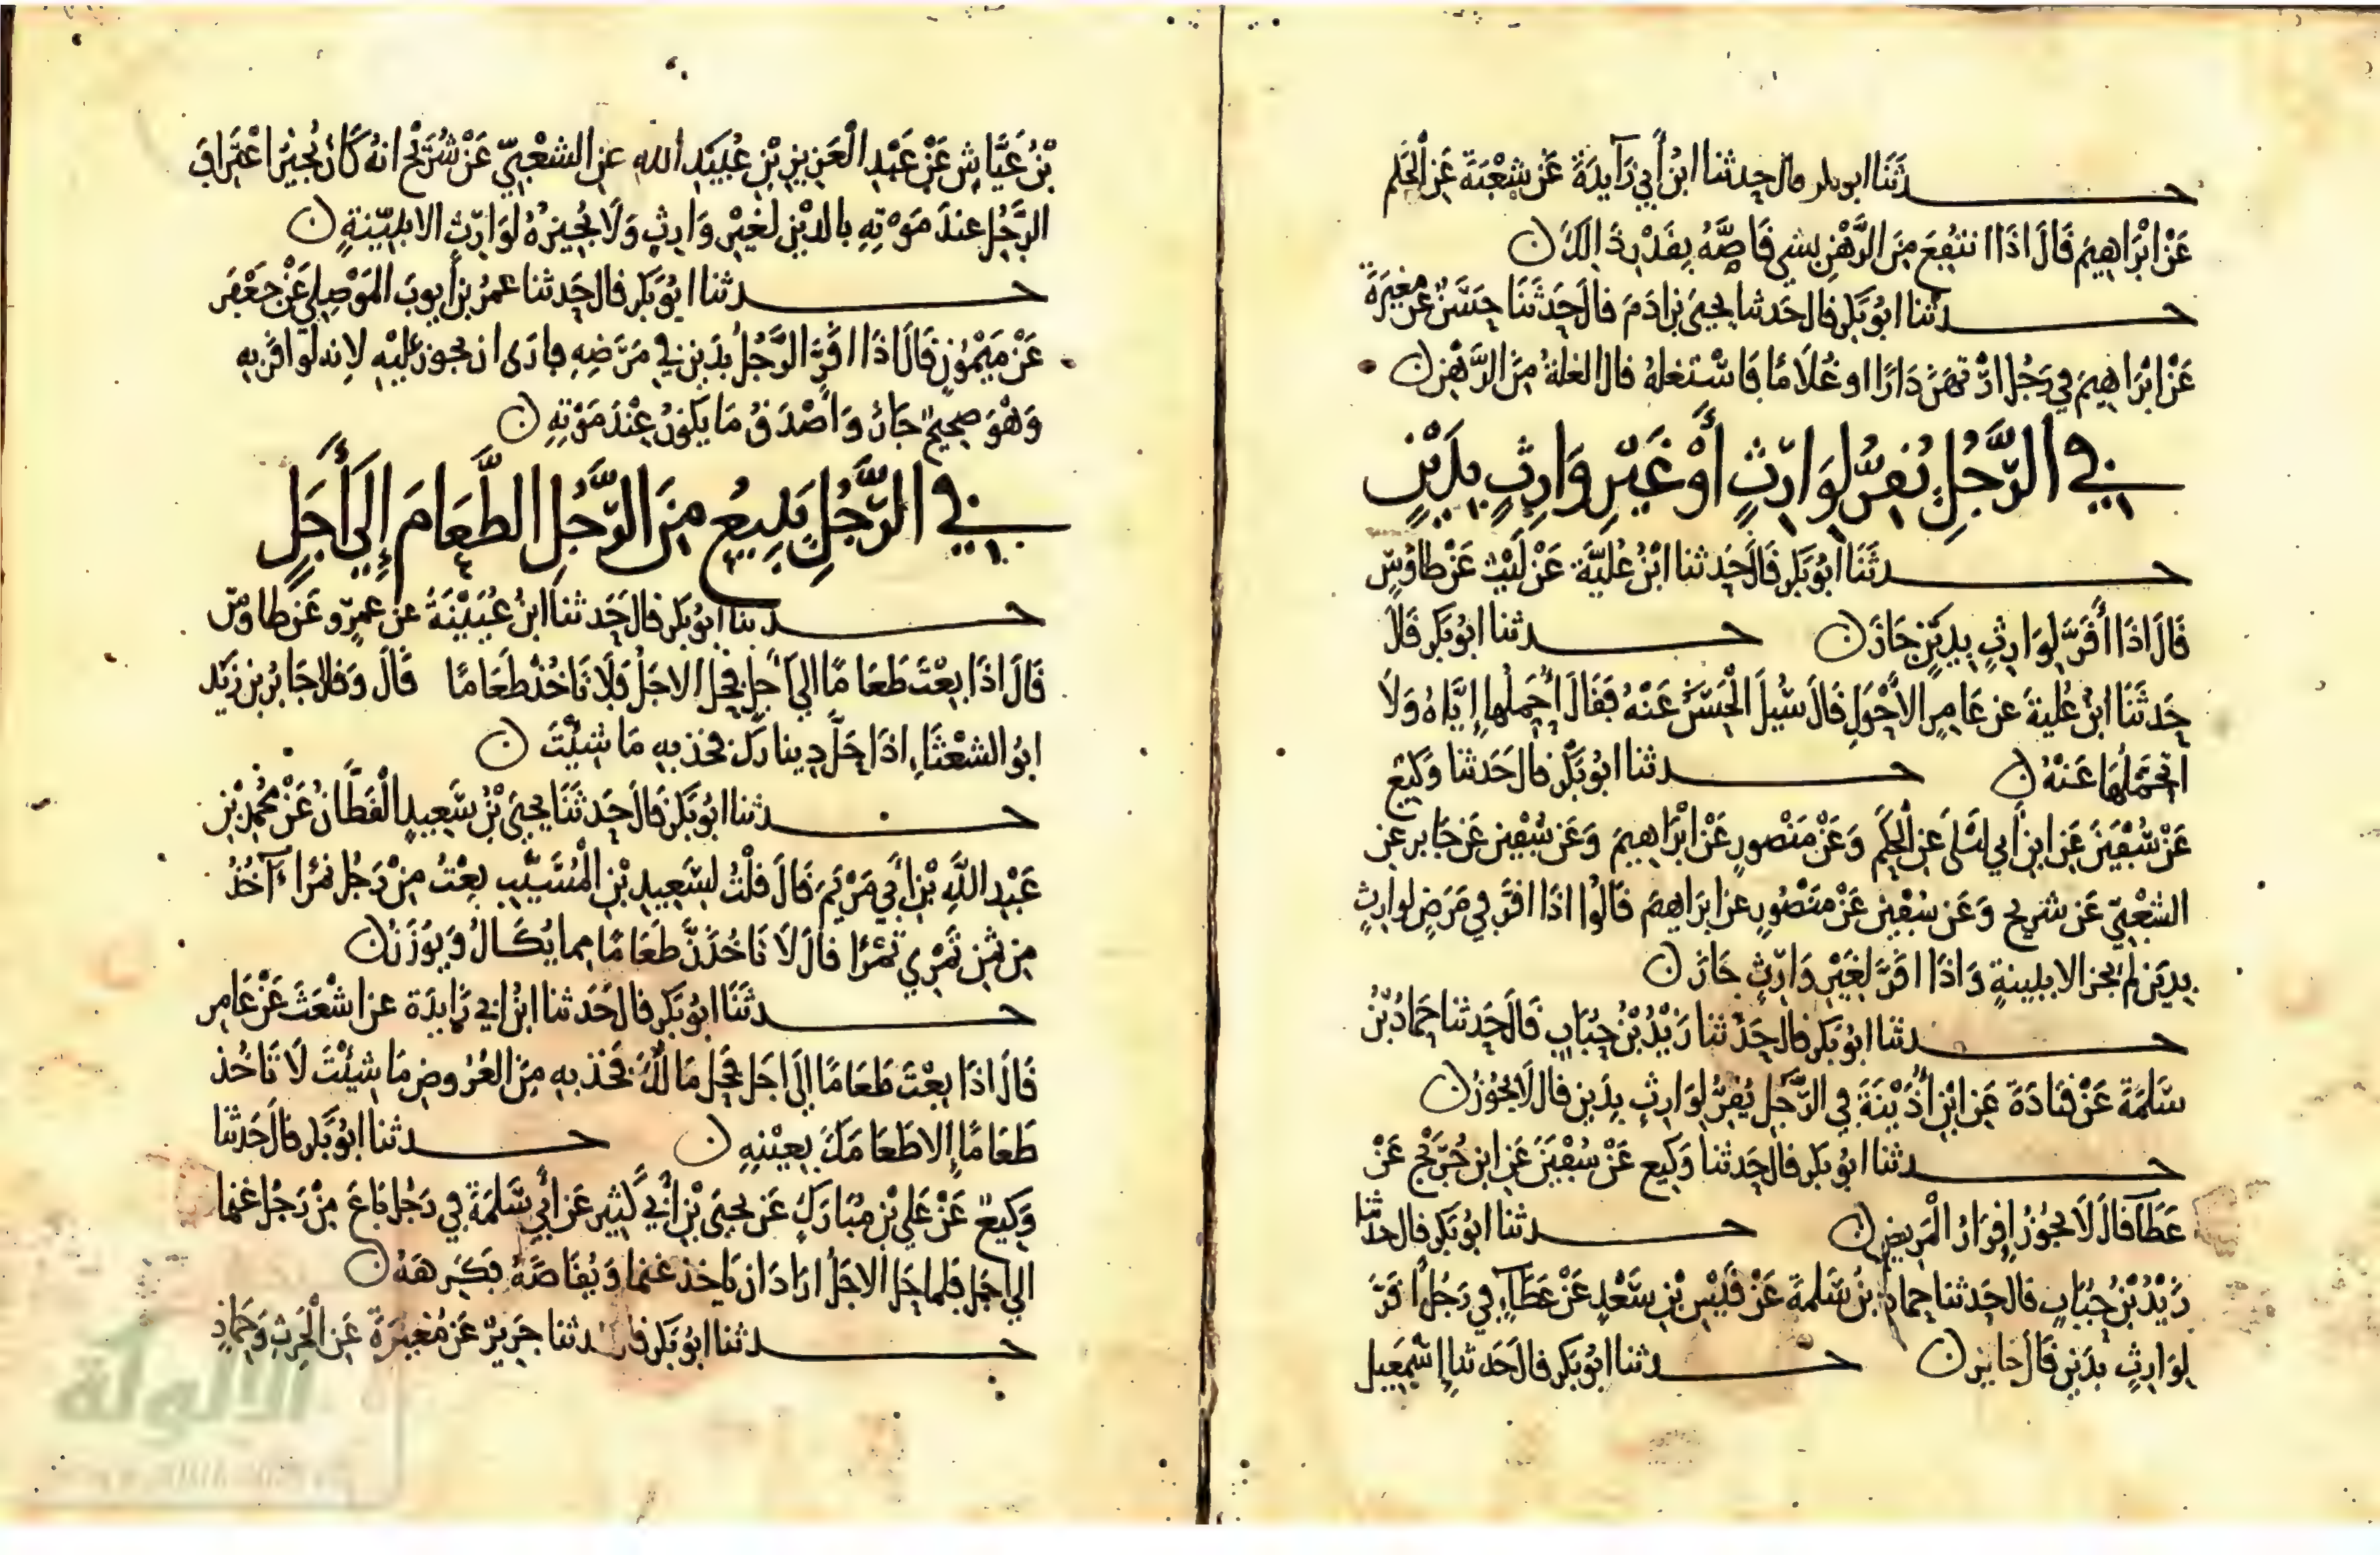 حدثنا ابو بكر قال حدثنا ابْنُ أَبِي زَآيِدَةَ عَنْ شُعْبَةَ عَنِ الْحَكَمِ
عَنْ ابْرَاهِيمَ قَالَ اذَا انتفِعَ مِنَ الرَّهْنِ بشي قَاصَّهُ بِقَدْرِ ذَالِكَ ن
حدثنا ابُو بَكر قال حَدثنا يحيَى بن ادَمَ قالَ حَدَّثَنَا حَسَنٌ عَن مغِيَرةَ
عَنْ ابْرَاهِيمَ فِي رَجُلٍ ارْتَهَنَ دَارًا او غُلَامًا فَاسْتغلهُ قال الغلةُ مِنَ الرَّهْن ن
في الرَّجُلِ يُقِرُّ لِوَارِثٍ أَوْ غَيْرِ وَارِثٍ بِدَيْنٍ
حدثَنَا أبُو بَكر قَالَ حَدثنا ابْنُ عُلَيَّةَ عَنْ لَيْثٍ عَنْ طاوُسٍ
قَالَ اذَا أَقَرَّ لِوَارِثٍ بِدَيْنٍ جَازَ ن حدثنا ابُو بَكر قَالَ
حَدثَنَا ابْنُ عُليةَ عن عَامِرٍ الاَحْوَلِ قَالَ سُيلَ الْحَسَنُ عَنْهُ فَقَالَ أُحَمِّلها إِيَّاهُ وَلَا
اتحَمَّلُهَا عَنْهُ ن حدثنا ابُو بَكر قال حَدثنا وَكِيع
عَنْ سُفْيَنَ عَنِ ابن أبي لَيْلَى عَنِ الْحَكَمِ وَعَنْ مَنْصُورٍ عَنْ ابْرَاهِيمَ وَعَنْ سُفْيَن عَنْ جَابرٍ عن
الشعْبِيِّ عَن شُرَيح وَعَن سُفْيَن عَنْ مَنْصُورٍ عن ابرَاهِيمَ قَالُوا اذَا اقَرَّ فِي مَرَضٍ لِوارِثٍ
بِدَيْنٍ لَمْ يَجز الا بِبَينةٍ وَاذَا اقَرَّ لِغَيْرِ وَارِثٍ جَازَ ن
حدثنا ابُو بَكر قال حَدثنا زَيْدُ بْنُ حُبَابٍ قَالَ حَدثنا حَمادُ بْنُ
سَلَمَةَ عَنْ قتَادَةَ عَنِ ابْنِ أُذَيْنَةَ فِي الرَّجُلِ يُقِرُّ لِوَارِثٍ بِدَينٍ قال لَا يَجُوزُ ن
حدثنا ابُو بَكر قال حَدثنا وَكِيع عَنْ سُفْيَنَ عَنِ ابْنِ جُرَيْجٍ عَنْ
عَطَآ قالَ لَا يَجُوزُ إِقرَارُ الْمَرِيضِ ن حدثنا ابُو بَكر قال حدثنا
زَيْدُ بْنُ حُبَابٍ قَالَ حَدثنا حمادُ بْنُ سَلَمَةَ عَنْ قَيْسِ بْنِ سَعْدٍ عَنْ عَطَآءٍ فِي رَجُلٍ اقَرَّ
لِوَارِثٍ بِدَيْنٍ قَالَ جَايز ن حدثنا ابُو بَكر قال حَدثنا إِسْمَعِيل
بْنُ عَيَّاشٍ عَنْ عَبْدِ الْعَزِيزِ بْنِ عُبَيْدِ اللهِ عن الشعْبِيِّ عَنْ شُرَيْحٍ انهُ كَانَ يُجِيزُ اعْتِرَافَ
الرَّجُلِ عندَ مَوْتِهِ بالدَّيْنِ لغَيْرِ وَارِثٍ وَلَا يُجِيزُهُ لِوَارِثٍ الا بِبَيِّنةٍ ن
حدثنا ابُو بَكر قال حَدثنا عمَرُ بن أيوبَ المَوْصِلي عَنْ جَعْفَر
عَنْ مَيْمُونٍ قَالَ اذَا اقَرَّ الرَّجُلُ بدَيْنٍ فِي مَرَضِهِ فارَى ان يجوزَ عليْهِ لانه لَوْ اقَرَّ به
وَهْوَ صحِيحٌ جَازَ وَاصْدَقُ مَا يَكُونُ عِنْدَ مَوْتِهِ ن
في الرَّجُلِ يَبِيعُ مِنَ الرَّجُلِ الطَّعَامَ إِلَى أَجَلٍ
حدثنا أبُو بَكر قالَ حَدثنا ابنُ عُيَيْنَةَ عن عمرٍو عَن طاوسٍ
قَالَ اذَا بِعْتَ طَعَامًا الى اجَلٍ فحَلَّ الاجَلُ فَلَا تَاخُذ طَعَامًا قَالَ وَقال جَابرُ بن زَيْد
ابُو الشعْثَاءِ اذَا حَلَّ دِينارَك فخذ به مَا شيْتَ ن
حدثنا ابُو بَكر قَالَ حَدثَنَا يحيَى بْنُ سَعِيدٍ الْقَطَّانُ عَنْ مُحَمَّدِ بْنِ
عَبْدِ اللَّهِ بْنِ أبِي مَرْيَمَ قَالَ قلْتُ لسَعِيدِ بْنِ الْمُسَيَّبِ بِعْتُ مِنْ رَجُلٍ تمْرًا آخُذُ
مِن ثَمَنِ تَمْرِي تَمْرًا قالَ لَا تَاخُذَنَّ طَعَامًا مِما يُكَالُ وَيُوزَنُ ن
حدثَنَا ابُو بَكر قال حَدثنا ابْنُ ابي زَايدَةَ عن اشْعَثَ عَنْ عَامِر
قَالَ اذَا بِعْتَ طَعَامًا الى اجَلٍ فحَلَّ مَالُكَ فَخذ به مِنَ العُرُوضِ مَا شيْتَ لَا تَاخُذ
طَعَامًا إِلا طَعَامَكَ بِعَيْنِهِ ن حدثنا ابُو بَكر قال حَدثنا
وَكِيعٌ عَنْ عَلِي بْنِ مُبَارَكٍ عَن يحيَى بْنِ أبِي كَثِيرٍ عَن أبِي سَلَمَةَ فِي رَجُلٍ بَاعَ مِنْ رَجُلٍ غنما
الى اجَلٍ فلما حَلَّ الاجَلُ ارَادَ ان يَاخذ غنما وَيُقَاصَّهُ فَكَرِهَهُ ن
حدثنا ابُو بَكر قال حدثنا جَرِيرٌ عَن مُغِيرَةَ عَنِ الْحَرِثِ وَحَمادٍ